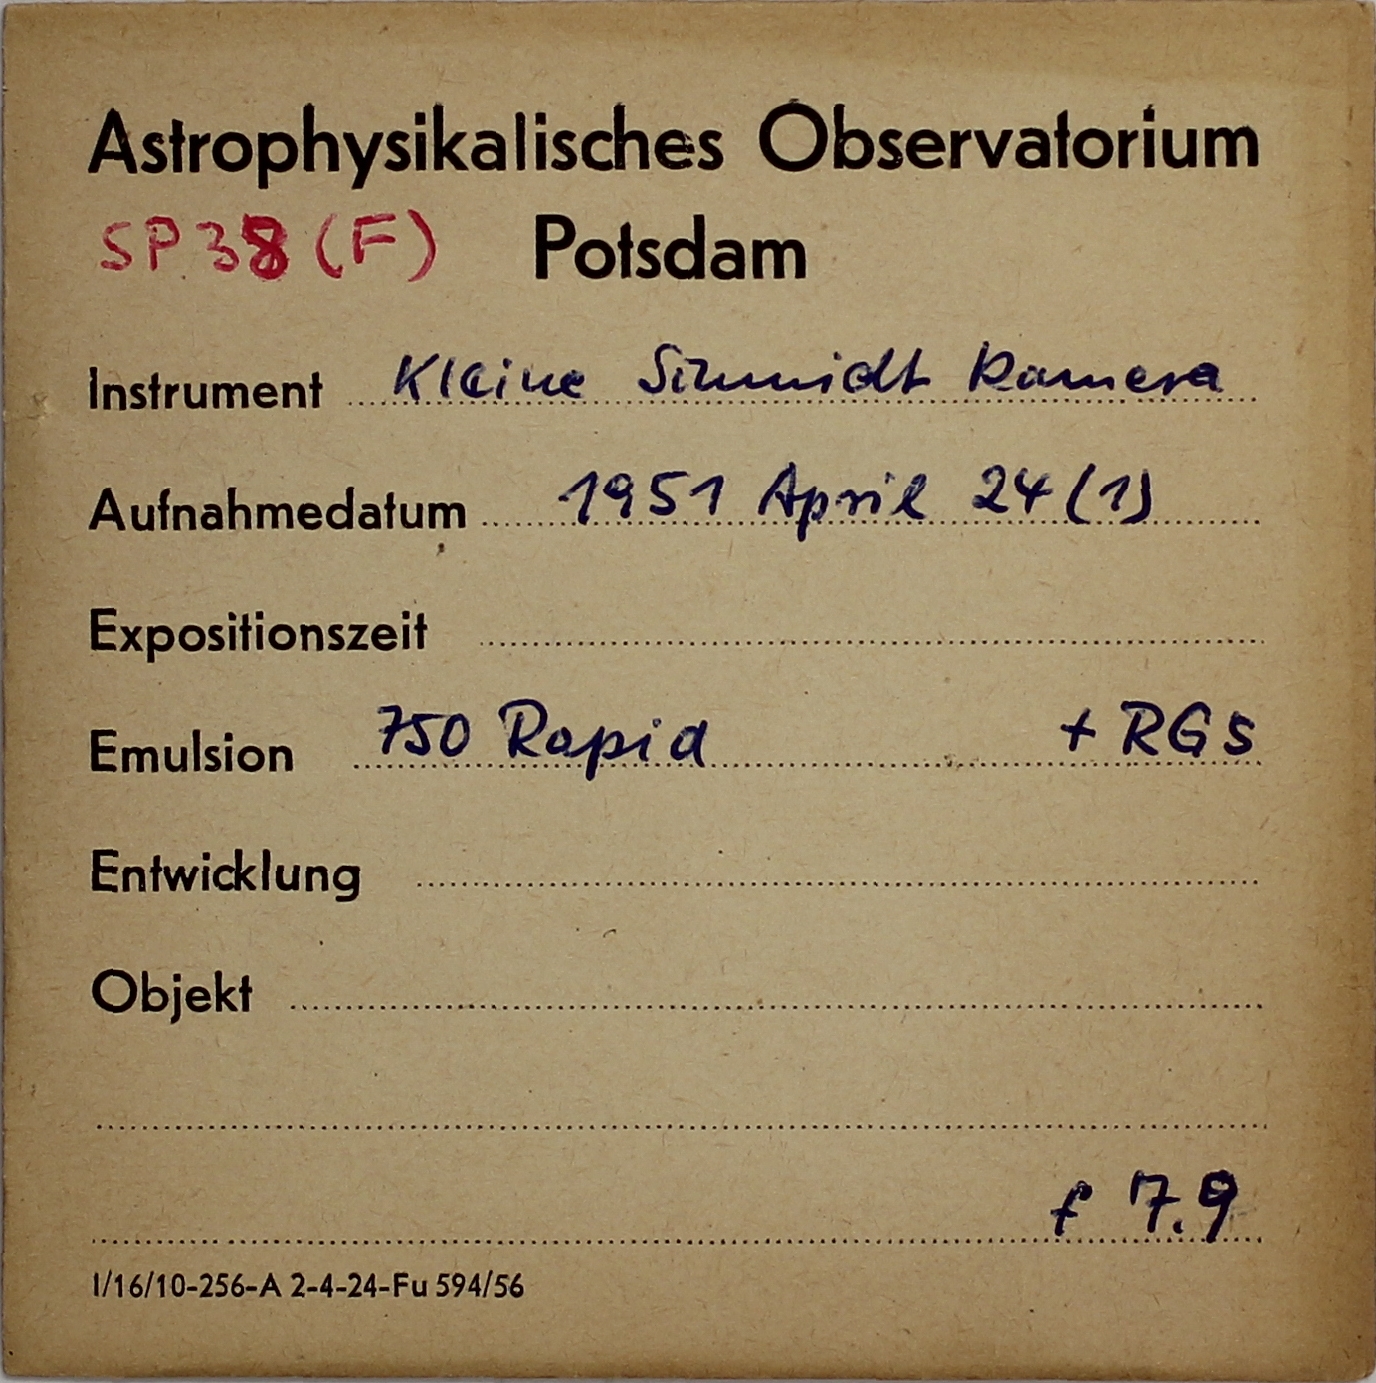 Astrophysikalisches Observatorium
SP38 (F) Potsdam
Instrument Kleine Schmidt Kamera
Aufnahmedatum 1951 April 24 (1)
Expositionszeit
Emulsion 750 Rapid + RG5
Entwicklung
Objekt
f 7.9
I/16/10-256-A 2-4-24-Fu 594/56